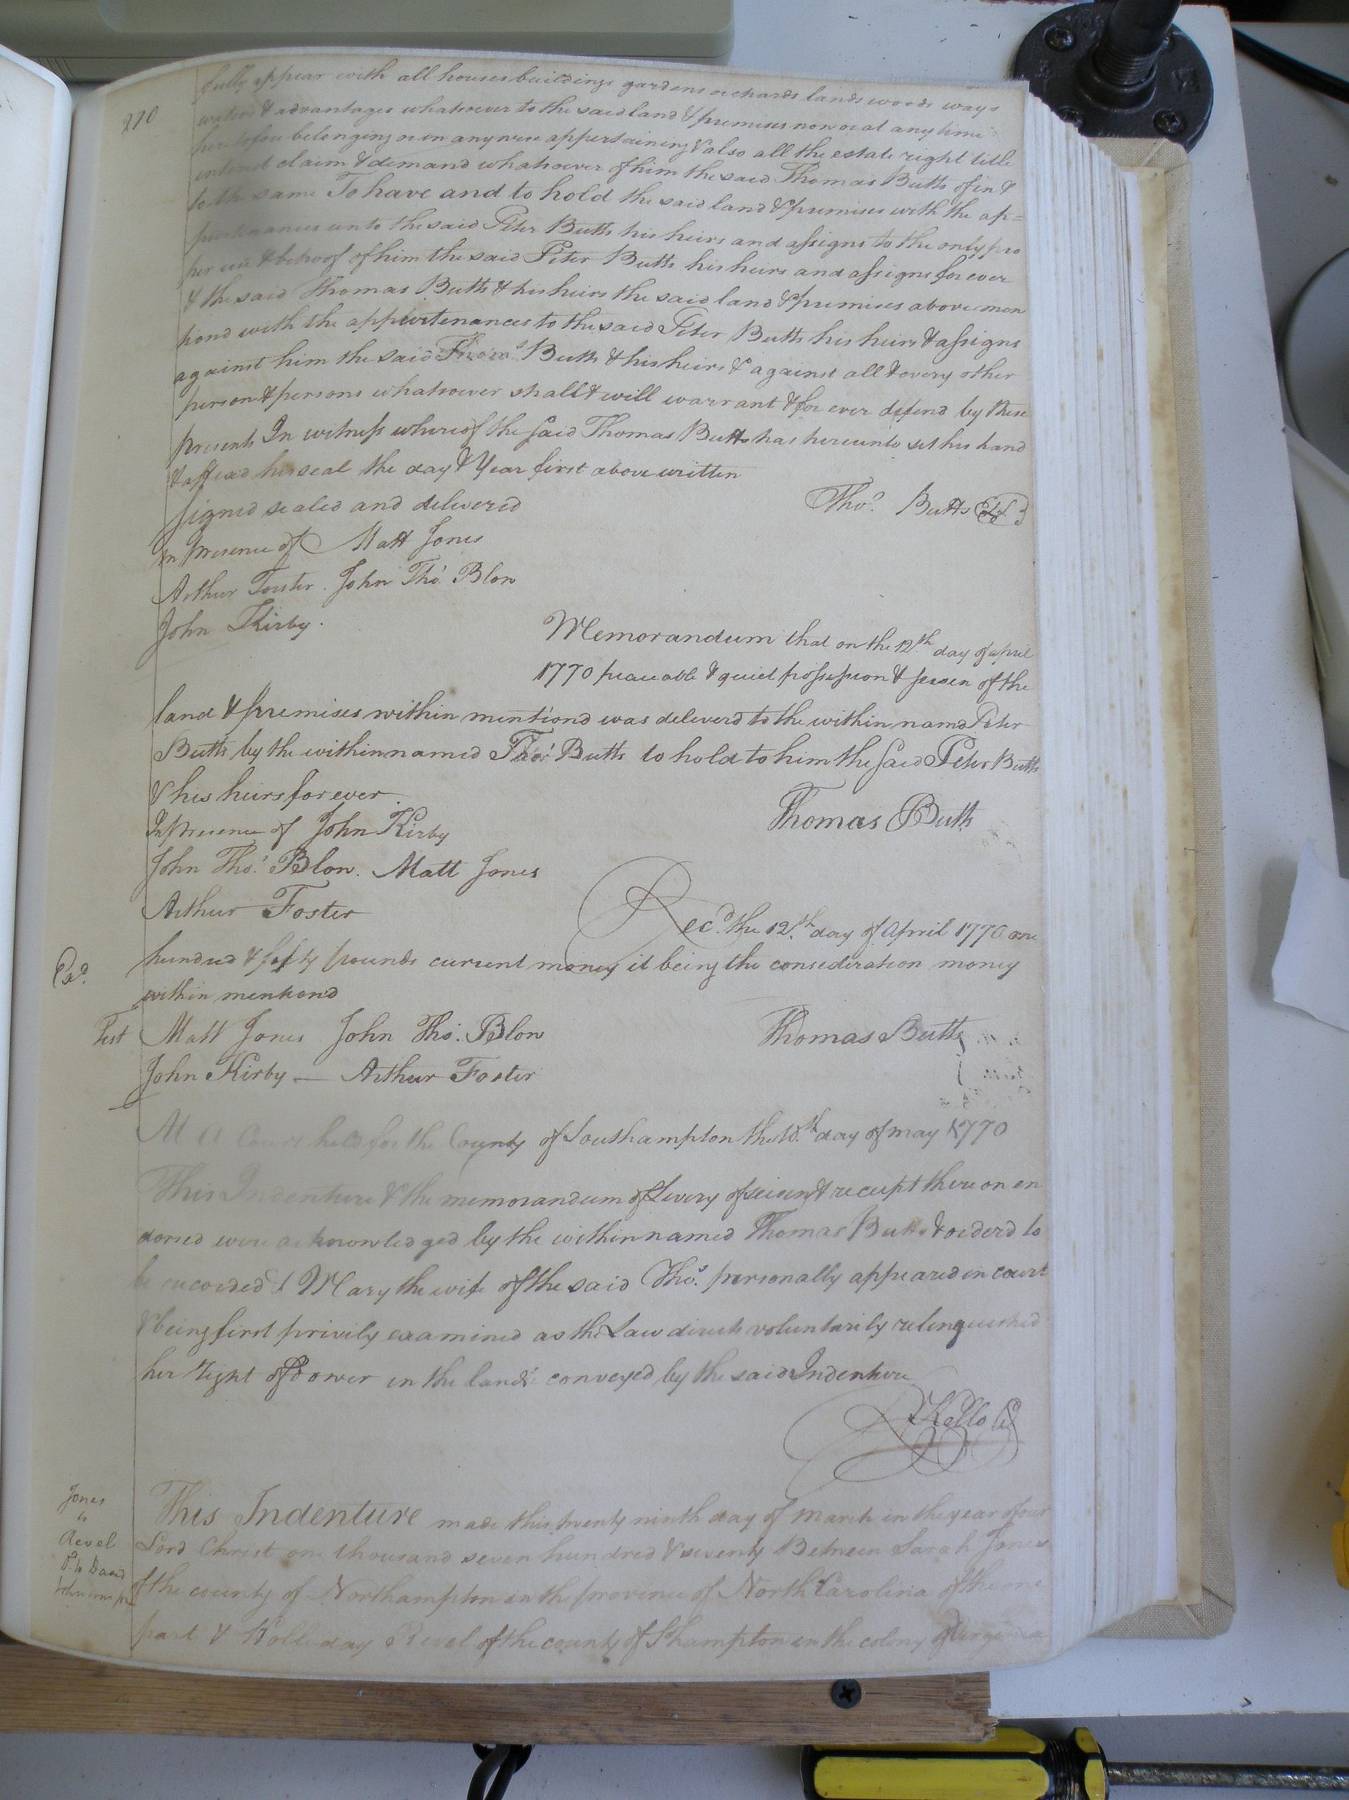 270
fully appear with all houses buildings gardens orchards lands woods ways
waters & advantages whatsoever to the said land & premises now or at any time
heretofore belonging or in any wise appertaining & also all the estate right title
interest claim & demand whatsoever of him the said Thomas Butts of in &
to the same To have and to hold the said land & premises with the ap=
purtenances unto the said Peter Butts his heirs and assigns to the only pro
per use & behoof of him the said Peter Butts his heirs and assigns for ever
& the said Thomas Butts & his heirs the said land & premises above men
tiond with the appurtenances to the said Peter Butts his heirs & assigns
against him the said Thos. Butts & his heirs & against all & every other
person & persons whatsoever shall & will warrant & for ever defend by these
presents In witness whereof the said Thomas Butts has hereunto set his hand
& affixd his seal the day & Year first above written
signed sealed and delivered
Thos. Butts LS
in presence of Matt Jones
Arthur Foster. John Thos. Blow
John Kirby.
Memorandum that on the 12th day of april
1770 peaceable & quiet possession & seisen of the
land & premises within mentiond was deliverd to the within namd Peter
Butts by the within named Thos. Butts to hold to him the said Peter Butts
& his heirs for ever.
Thomas Butts
In presence of John Kirby
John Thos. Blow. Matt Jones
Arthur Foster
Recd. the 12th day of April 1770 one
hundred & fifty pounds current money it being the consideration money
within mentiond
Test Matt Jones John Thos. Blow
Thomas Butts
John Kirby — Arthur Foster
At a Court held for the County of Southampton the 10th day of may 1770
This Indenture & the memorandum of Livery of seisen & receipt thereon en
dorsed were acknowledged by the within named Thomas Butts & orderd to
be recorded & Mary the wife of the said Thos. personally appeared in court
& being first privily examined as the Law directs voluntarily relinquished
her right of Dower in the lands conveyed by the said Indenture
RKello
Jones
"
Revel
This Indenture made this twenty ninth day of march in the year of our
Lord Christ one thousand seven hundred & seventy Between Sarah Jones
of the county of Northampton in the province of North Carolina of the one
part & Holladay Revel of the county of Shampton in the colony of Virginia